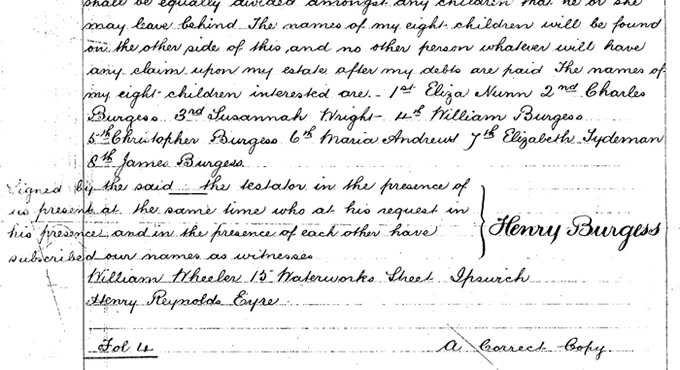 shall be equally divided amongst any children that he or she
may leave behind The names of my eight children will be found
on the other side of this and no other person whatever will have
any claim upon my estate after my debts are paid The names of
my eight children interested are 1st Eliza Nunn 2nd Charles
Burgess 3rd Susannah Wright 4th William Burgess
5th Christopher Burgess 6th Maria Andrews 7th Elizabeth Tydeman
8th James Burgess
Signed by the said the testator in the presence of
us present at the same time who at his request in
his presence and in the presence of each other have
subscribed our names as witnesses
Henry Burgess
William Wheeler 15 Waterworks Street Ipswich
Henry Reynolds Eyre
Fol 4 A Correct Copy.